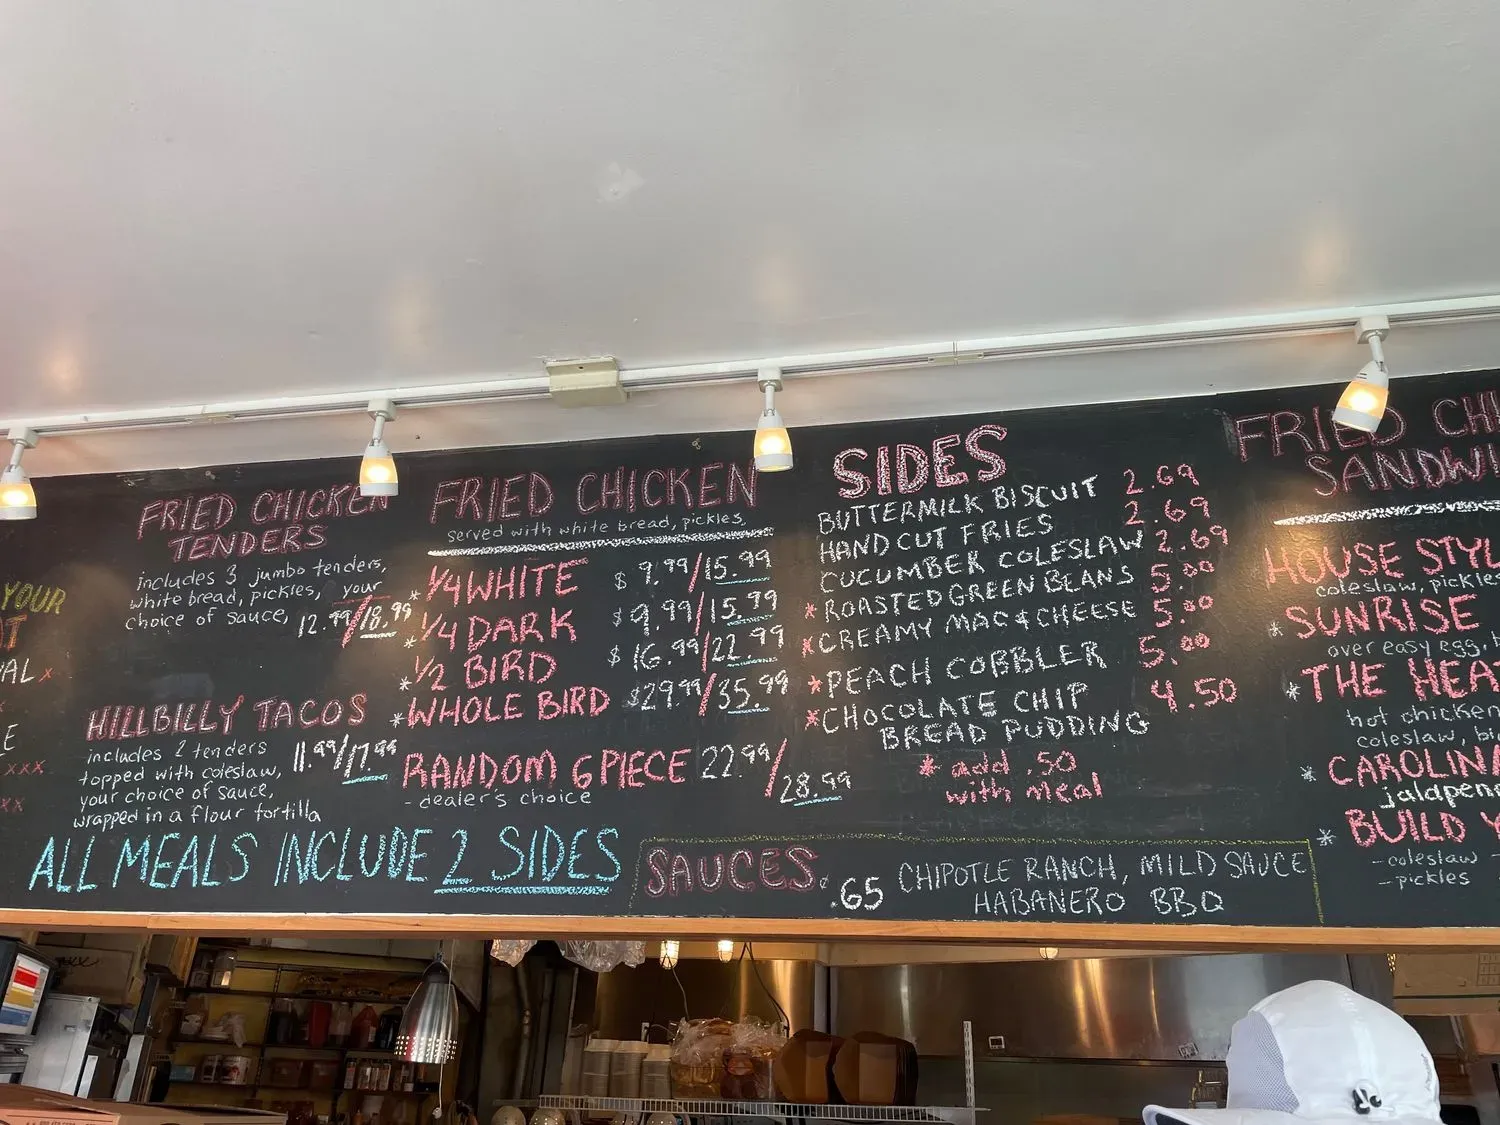 YOUR
FRIED CHICKEN
TENDERS
includes 3 jumbo tenders,
white bread, pickles, your
choice of sauce, 12.99/18.99
HILLBILLY TACOS
includes 2 tenders 11.99/17.99
topped with coleslaw,
your choice of sauce,
wrapped in a flour tortilla
ALL MEALS INCLUDE 2 SIDES
FRIED CHICKEN
served with white bread, pickles
* 1/4 WHITE $ 9.99/15.99
* 1/4 DARK $ 9.99/15.99
* 1/2 BIRD $ 16.99/22.99
* WHOLE BIRD $29.99/35.99
RANDOM 6 PIECE 22.99/28.99
- dealer's choice
SIDES
BUTTERMILK BISCUIT 2.69
HAND CUT FRIES 2.69
CUCUMBER COLESLAW 2.69
* ROASTED GREEN BEANS 5.00
* CREAMY MAC & CHEESE 5.00
* PEACH COBBLER 5.00
* CHOCOLATE CHIP 4.50
BREAD PUDDING
* add .50
with meal
SAUCES .65 CHIPOTLE RANCH, MILD SAUCE
HABANERO BBQ
FRIED CHI
SANDWI
HOUSE STYL
coleslaw, pickles
* SUNRISE
over easy egg, b
* THE HEA
hot chicken
coleslaw, bi
* CAROLINA
jalapeno
* BUILD Y
- coleslaw -
- pickles